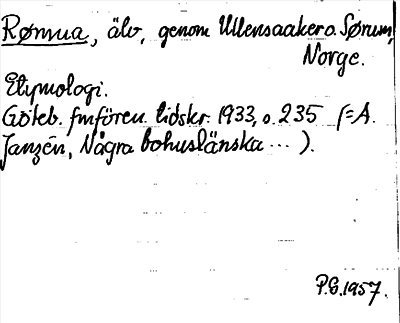 Rømua, älv, genom Ullensaaker o. Sørum,
Norge.
Etymologi.
Göteb. fmfören. tidskr. 1933, s. 235 (= A.
Janzén, Några bohuslänska ... ).
P.G. 1957.